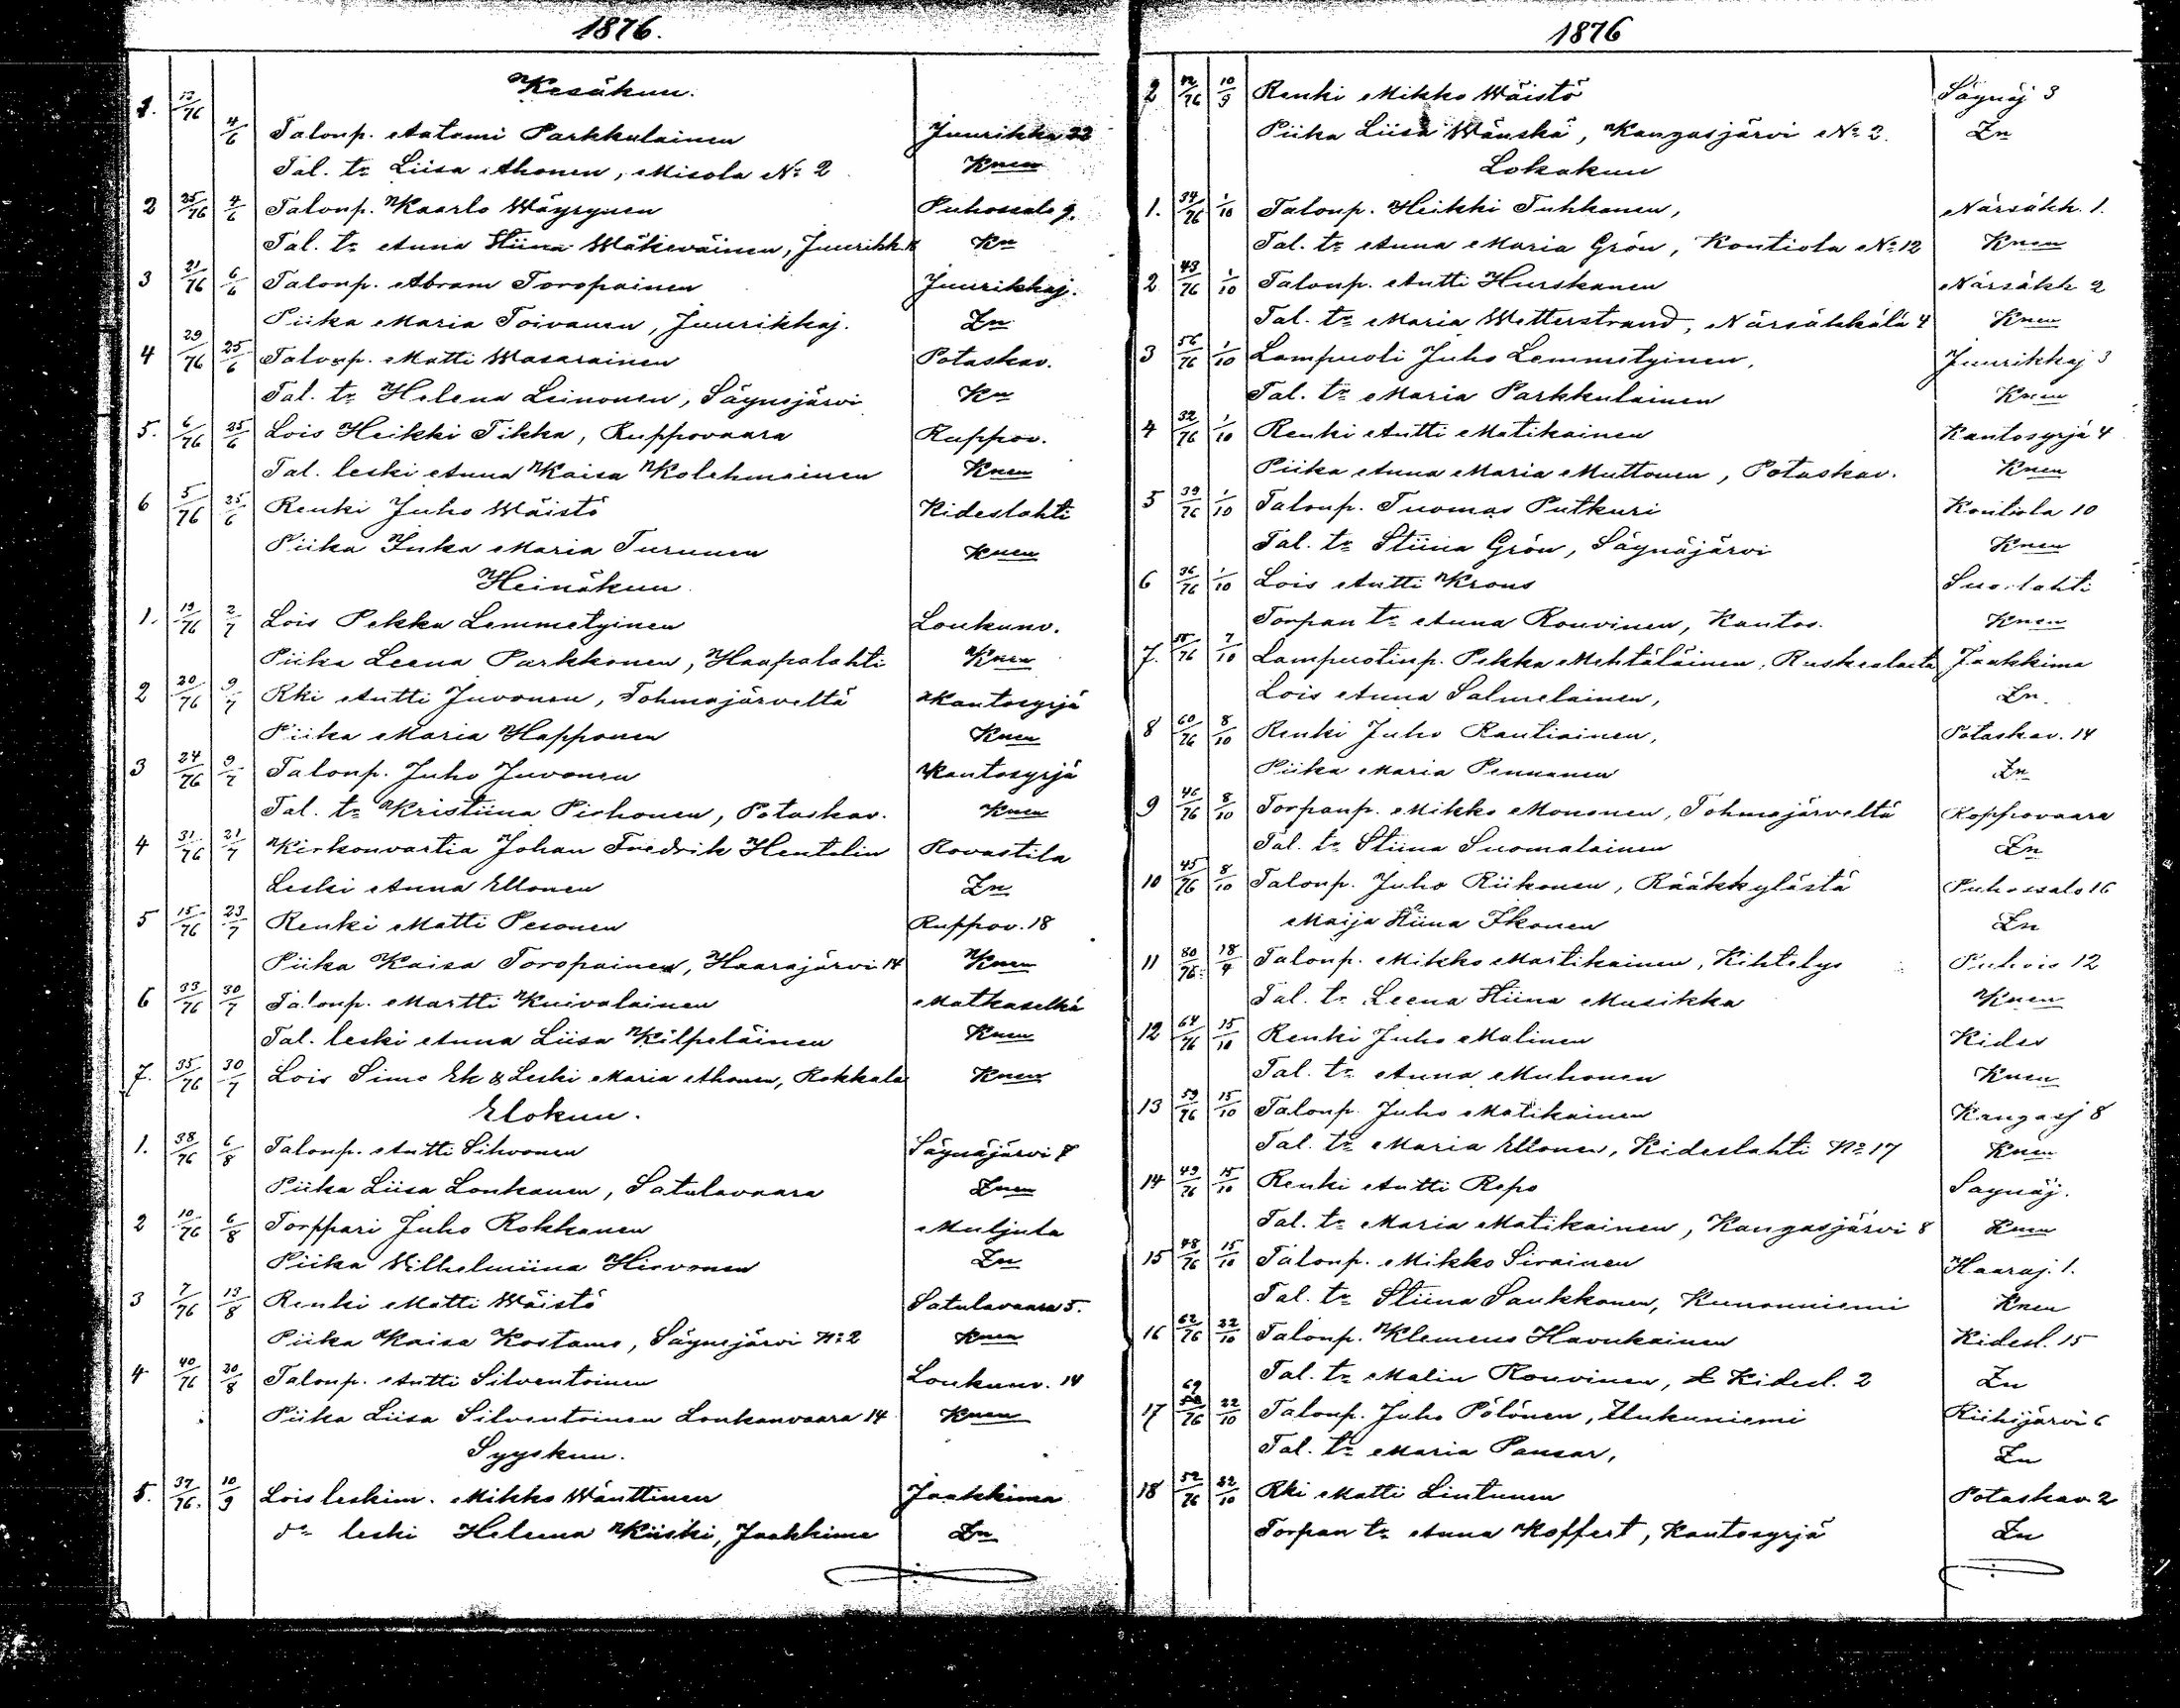 1876.
Kesäkuu.
1. 13/76 4/6 Talonp. Aatami Parkkulainen Juurikka 22
Tal. tr Liisa Ahonen, Misola No 2 Knen
2 25/76 4/6 Talonp. Kaarlo Wäyrynen Puhossalo 9.
Tal. tr Anna Stiina Wäkeväinen, Juurikk. Kn
3 21/76 6/6 Talonp. Abram Toropainen Juurikkaj.
Piika Maria Toivanen, Juurikkaj. Zn
4 29/76 25/6 Talonp. Matti Wasarainen Potaskav.
Tal. tr Helena Leinonen, Säynejärvi Kn
5. 6/76 25/6 Lois Heikki Tikka, Ruppovaara Ruppov.
Tal. leski Anna Kaisa Kolehmainen Knen
6 5/76 25/6 Renki Juho Wäistö Kideslahti
Piika Inka Maria Turunen Knen
Heinäkuu
1. 19/76 2/7 Lois Pekka Lemmetyinen Loukunv.
Piika Leena Parkkonen, Haapalahti Knen
2 20/76 9/7 Rki Antti Juvonen, Tohmajärveltä Kantosyrjä
Piika Maria Happonen Knen
3 24/76 9/7 Talonp. Juho Juvonen Kantosyrjä
Tal. tr Kristiina Pirhonen, Potaskav. Knen
4 31/76 21/7 Kirkonvartia Johan Fredrik Hentelin Rovastila
Leski Anna Ellonen Zn
5 15/76 23/7 Renki Matti Pesonen Ruppov. 18
Piika Kaisa Toropainen, Haarajärvi 14 Knen
6 33/76 30/7 Talonp. Martti Kuivalainen Matkaselkä
Tal. leski Anna Liisa Kilpeläinen Knen
7. 35/76 30/7 Lois Simo Ek & Leski Maria Ahonen, Rokkala Knen
Elokuu.
1. 38/76 6/8 Talonp. Antti Sihvonen Säynäjärvi 8
Piika Liisa Lonkanen, Satulavaara Znen
2 10/76 6/8 Torppari Juho Rokkanen Muljula
Piika Wilhelmiina Hirvonen Zn
3 7/76 13/8 Renki Matti Wäistö Satulavaara 5.
Piika Kaisa Kostamo, Säynejärvi No 2 Knen
4 40/76 20/8 Talonp. Antti Silventoinen Loukunv. 14
Piika Liisa Silventoinen Lonkanvaara 14 Knen
Syyskuu.
5. 37/76. 10/9 Lois leskim. Mikko Wänttinen Jaakkima
do leski Heleena Kiiski, Jaakkima Zn
1876
2 42/76 10/9 Renki Mikko Wäistö Säynäj 3
Piika Liisa Wänskä, Kangasjärvi No 2. Zn
Lokakuu
1. 34/76 1/10 Talonp. Heikki Tuhkanen, Närsäkk. 1.
Tal. tr Anna Maria Grön, Kontiola No 12 Knen
2 43/76 1/10 Talonp. Antti Hurskanen Närsäkk 2
Tal. tr Maria Wetterstrand, Närsäkkälä 4 Knen
3 56/76 1/10 Lampuoti Juho Lemmetyinen, Juurikkaj 3
Tal. tr Maria Parkkulainen Knen
4 32/76 1/10 Renki Antti Matikainen Kantosyrjä 4
Piika Anna Maria Muttonen, Potaskav. Knen
5 39/76 1/10 Talonp. Tuomas Putkuri Kontiola 10
Tal. tr Stiina Grön, Säynäjärvi Knen
6 36/76 1/10 Lois Antti Krons Suorlahti
Torpan tr Anna Rouvinen, Kantos. Knen
7. 55/76 7/10 Lampuotinp. Pekka Mehtäläinen, Ruskealasta Jaakkima
Lois Anna Salmelainen, Zn.
8 60/76 8/10 Renki Juho Rautiainen, Potaskav. 14
Piika Maria Pennanen Zn
9 46/76 8/10 Torpanp. Mikko Mononen, Tohmajärveltä Koppovaara
Tal. tr Stiina Suomalainen Zn
10 45/76 8/10 Talonp. Juho Riikonen, Rääkkylästä Puhossalo 16
Maija Stiina Ikonen Zn
11 80/76 18/4 Talonp. Mikko Martikainen, Kihtelys Puhois 12
Tal. tr Leena Stiina Musikka Knen
12 64/76 15/10 Renki Juho Malinen Kides
Tal. tr Anna Muhonen Knen
13 59/76 15/10 Talonp. Juho Matikainen Kangasj 8
Tal. tr Maria Ellonen, Kideslahti No 17 Knen
14 49/76 15/10 Renki Antti Repo Saynäj.
Tal. tr Maria Matikainen, Kangasjärvi 8 Knen
15 48/76 15/10 Talonp. Mikko Sirainen Haaraj. 1.
Tal. tr Stiina Saukkonen, Kunonniemi Knen
16 62/76 22/10 Talonp. Klemens Havukainen Kidesl. 15
Tal. tr Malin Rouvinen, Kidesl. 2 Zn
17 69/76 22/10 Talonp. Juho Pölönen, Uukuniemi Riihijärvi 6
Tal. tr Maria Pansar, Zn
18 52/76 22/10 Rki Matti Lintunen Potaskav. 2
Torpan tr Anna Koffert, Kantosyrjä Zn